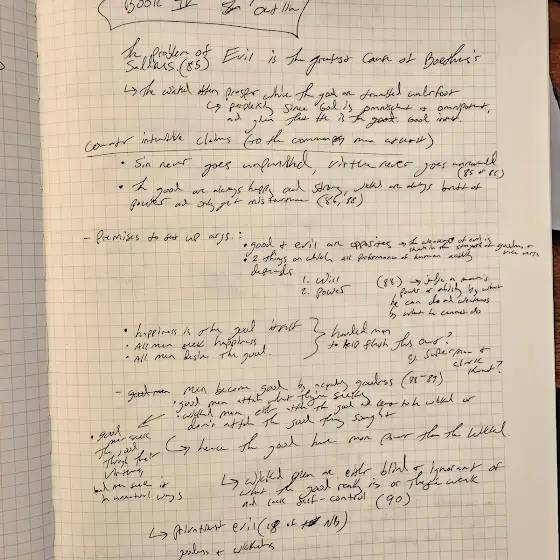 Book IV   outline
The problem of Evil is the greatest cause of Boethius's
Sadness. (85)
↳ The wicked often prosper while the good are trampled underfoot
↳ perplexity since God is omniscient & omnipotent,
and given that He is the good. Good
Counter intuitive claims (to the common man at least)
• Sin never goes unpunished, virtue never goes unrewarded
(85 or 86)
• The good are always happy and strong, wicked are always bereft of
power and only get misfortune (86, 88)
- Premises to set up args.:
• good & evil are opposites → the weakness of evil is
shown in the strength of goodness, or vice versa
• 2 things on which all performance of human activity
depends
1. Will
2. Power
(88) → judge a man's
power or ability by what
he can do and weakness
by what he cannot do
• happiness is the good itself
• All men seek happiness
• All men desire the good.
to help flesh this out?
eg Superman &
Clark Kent?
- men become good by acquiring goodness (88-89)
• good men attain what they're seeking
• wicked men either attain the good and cease to be wicked or
don't attain the good they sought
• good
men seek
the good
through their
virtues
bad men seek it
in unnatural ways
↳ hence the good have more power than the wicked.
↳ wicked men are either blind & ignorant of
what the good really is or they're weak
and lack self-control (90)
↳ privation evil
goodness & wickedness